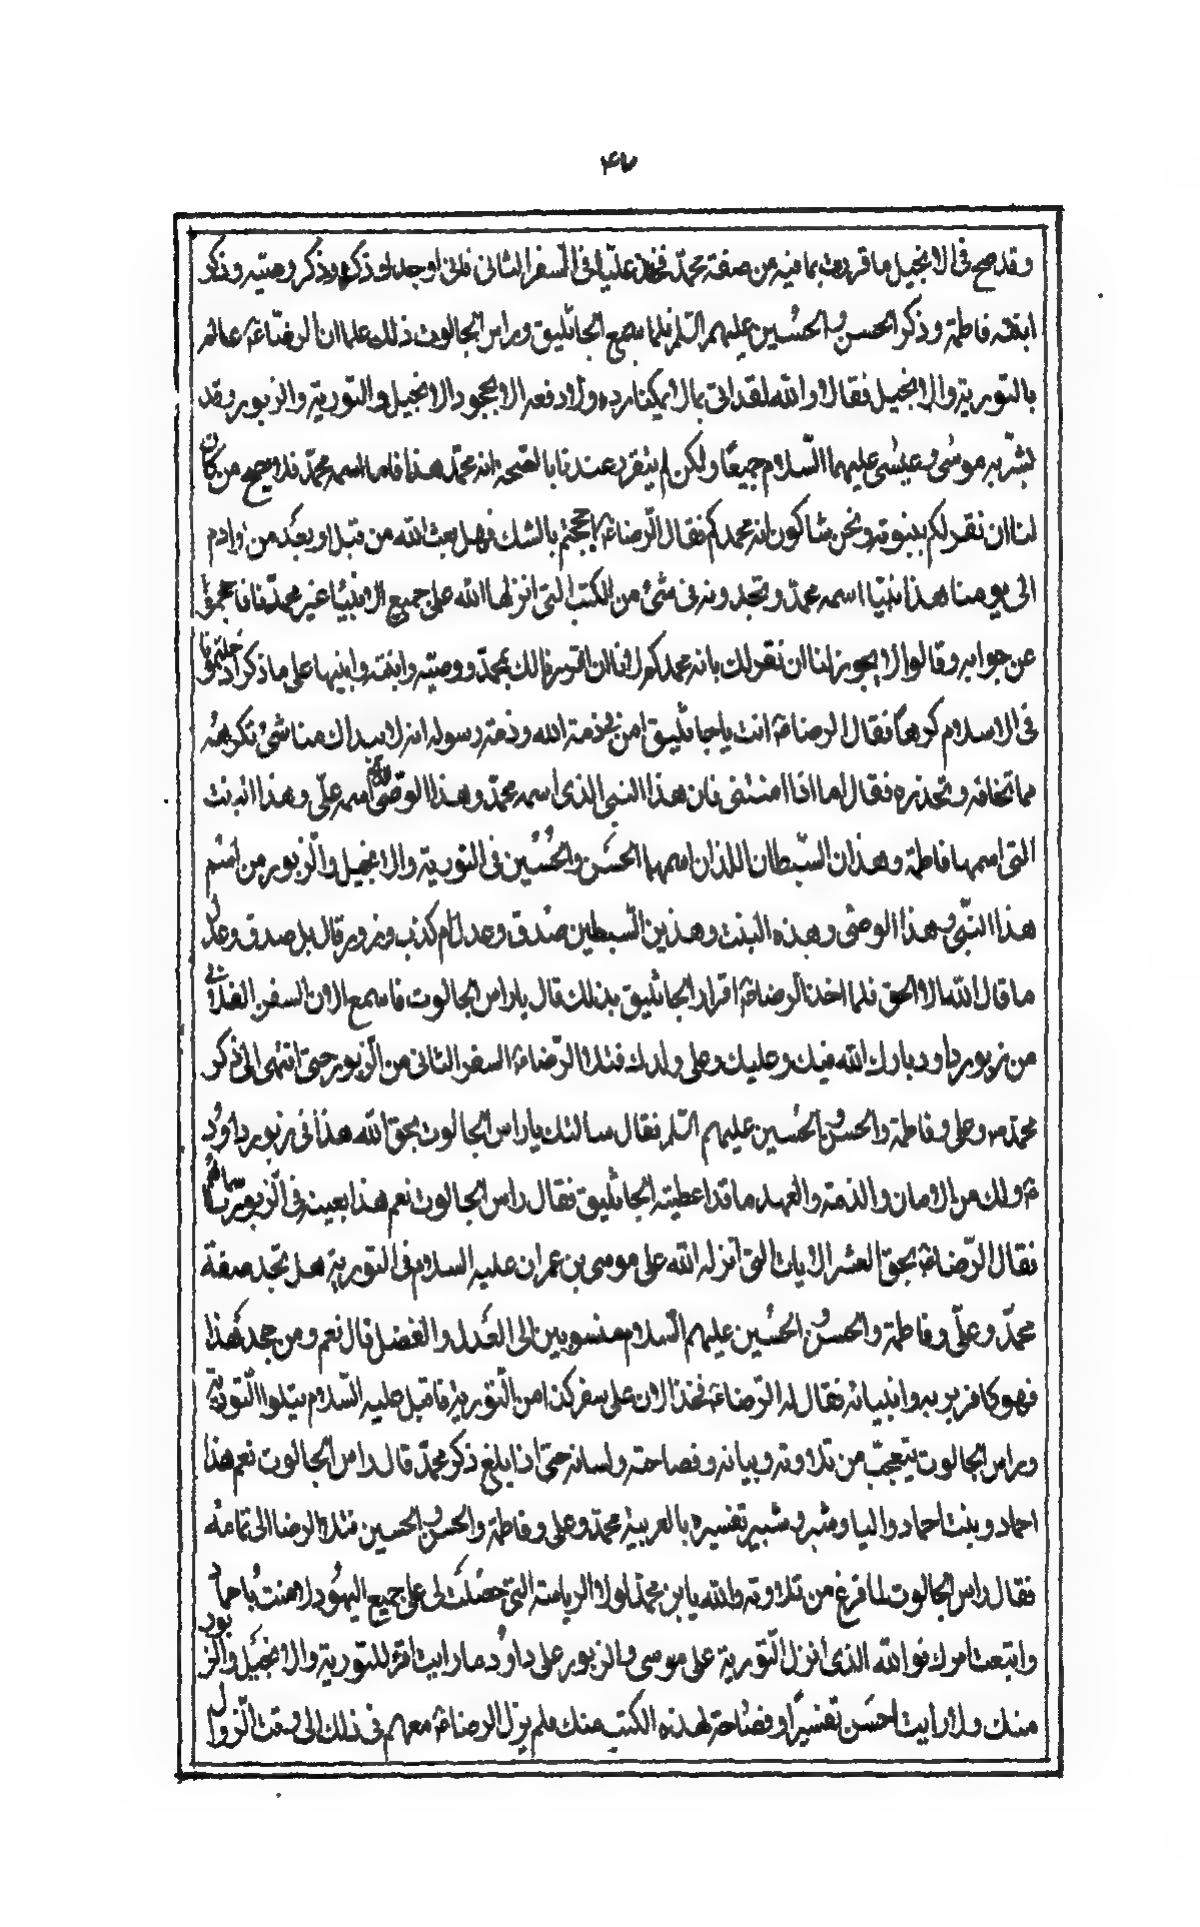 ۴۷
وقد صح فى الانجيل ما قررت بما فيه من صفة محمد فخذ علينا فى السفر الثانى فانى اوجدك ذكره وذكر وصيه وذكر
ابنته فاطمة وذكر الحسن والحسين عليهم السلم فلما سمع الجاثليق وراس الجالوت ذلك علما ان الرضا ع عالم
بالتورية والانجيل فقالا والله لقد اتى بما لا يمكننا رده ولا دفعه الا بجحود الانجيل والتورية والزبور وقد
بشر به موسى وعيسى عليهما السلام جميعا ولكن لم يتقرر عندنا بالصحة انه محمد هذا فاما اسمه محمد فلا يصح من كان
لنا ان نقر لكم بنبوته ونحن شاكون انه محمدكم فقال الرضا ع احججتم بالشك فهل بعث الله من قبل او بعد من ادم
الى يومنا هذا نبيا اسمه محمد وتجدونه فى شئ من الكتب التى انزلها الله على جميع الانبيا غير محمد فاحجموا
عن جوابه وقالوا لا يجوز لنا ان نقر لك بانه محمدكم لانا ان اقررنا لك بمحمد ووصيه وابنته وابنيها على ما ذكر ادخلتمونا
فى الاسلام كرها فقال الرضا ع انت يا جاثليق امن بذمة الله وذمة رسوله انه لا يبداك منا شئ تكرهه
مما تخافه وتحذره فقال اما اذا امنتنى فان هذا النبى الذى اسمه محمد وهذا الوصى الذى اسمه على وهذا البنت
التى اسمها فاطمة وهذان السبطان اللذان اسمهما الحسن والحسين فى التورية والانجيل والزبور من اسم
هذا النبى وهذا الوصى وهذه البنت وهذين السبطين صدق وعدل ام كذب وزور قال بل صدق وعدل
ما قال الله الا الحق فلما اخذ الرضا ع اقرار الجاثليق بذلك قال ياراس الجالوت فاسمع الان السفر الفلانى
من زبور داود بارك الله فيك وعليك وعلى ولدك فتلا الرضا ع السفر الثانى من الزبور حتى انتهى الى ذكر
محمد ص وعلى وفاطمة والحسن والحسين عليهم السلم فقال سالتك ياراس الجالوت بحق الله هذا فى زبور داود
ع ولك من الامان والذمة والعهد ما قد اعطيته الجاثليق فقال راس الجالوت نعم هذا بعينه فى الزبور باسمائهم
فقال الرضا ع بحق العشر الايات التى انزله الله على موسى بن عمران عليه السلام فى التورية هل تجد صفة
محمد وعلى وفاطمة والحسن والحسين عليهم السلام منسوبين الى العدل والفضل قال نعم ومن جحد هذا
فهو كافر بربه وانبيائه فقال له الرضا ع فخذ الان على سفر كذا من التورية فاقبل عليه السلام يتلوا التورية
وراس الجالوت يتعجب من تلاوته وبيانه وفصاحته ولسانه حتى اذا بلغ ذكر محمد قال راس الجالوت نعم هذا
احماد وبنت احماد واليا وشبر وشبير تفسيره بالعربية محمد وعلى وفاطمة والحسن والحسين فتلا الرضا الى تمامه
فقال راس الجالوت لما فرغ من تلاوته والله يا بن محمد لولا الرياسة التى حصلت لى على جميع اليهود لامنت باحماد
واتبعت امرك فوالله الذى انزل التورية على موسى والزبور على داود ما رايت اقرء للتورية والانجيل والزبور
منك ولا رايت احسن تفسيرا وفصاحة لهذه الكتب منك فلم يزل الرضا ع معهم فى ذلك الى وقت الزوال